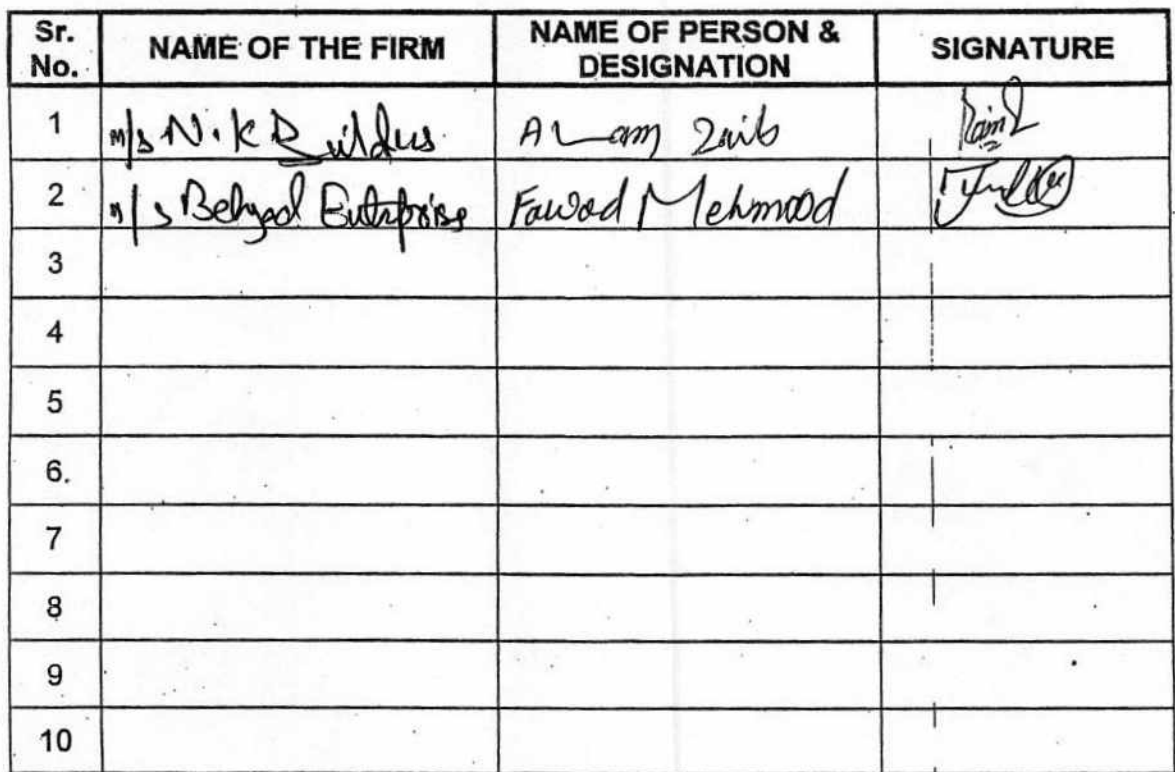 Sr. No. NAME OF THE FIRM NAME OF PERSON & DESIGNATION SIGNATURE
1 M/s N.K Builders Alam Zaib
2 M/s Behzad Enterprise Fawad Mehmood
3
4
5
6.
7
8
9
10